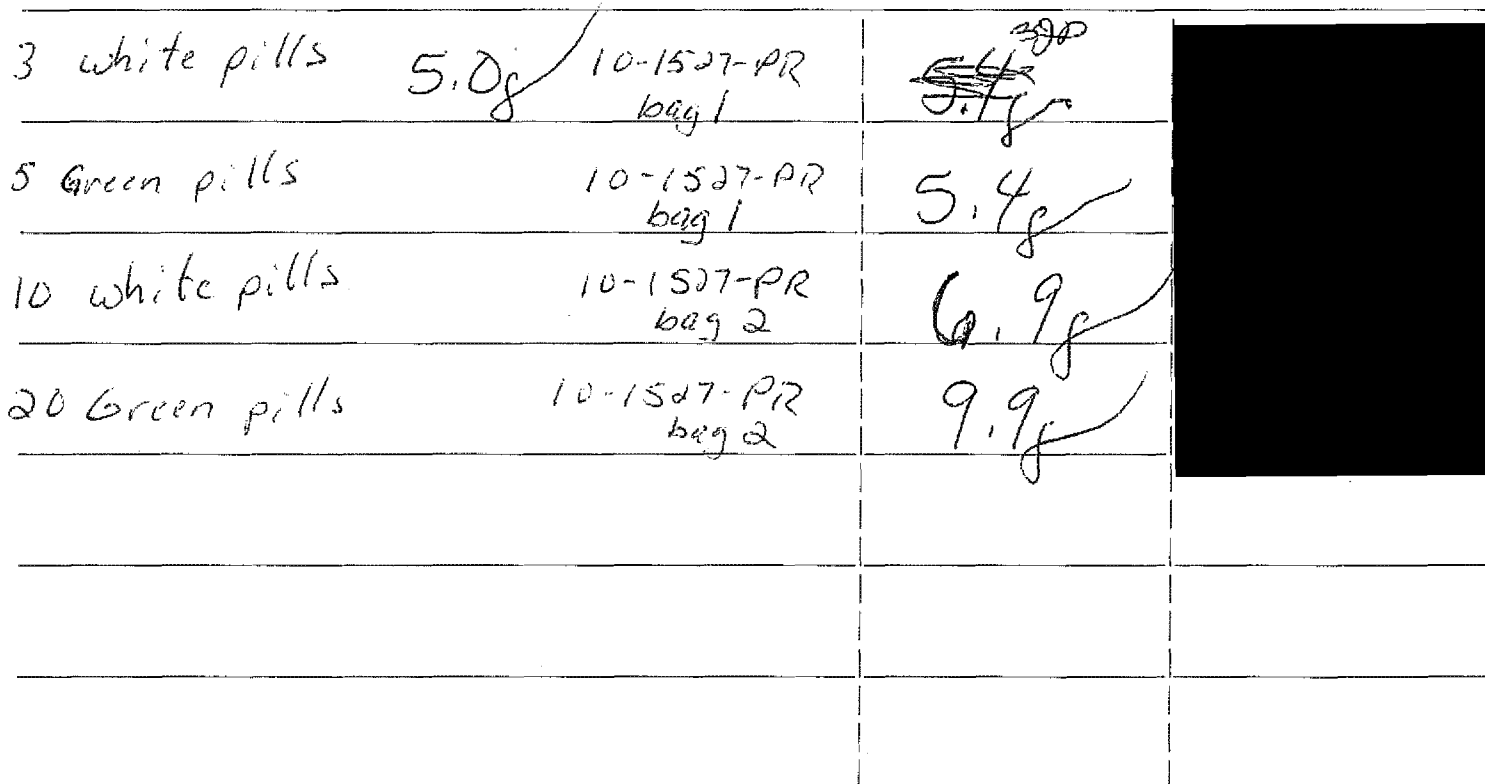 3 white pills 5.0g 10-1527-PR 5.4g
bag 1
5 Green pills 10-1527-PR 5.4g
bag 1
10 white pills 10-1527-PR 6.9g
bag 2
20 Green pills 10-1527-PR 9.9g
bag 2